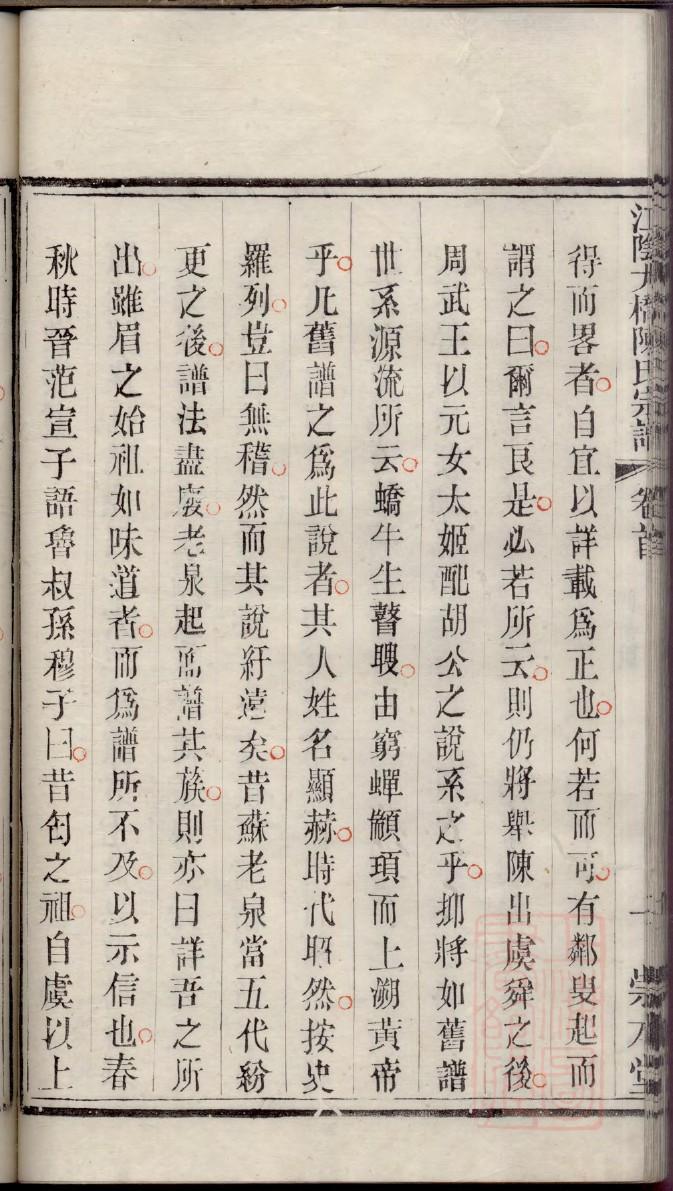 江陰九橋陳氏宗譜 卷首
得而畧者自宜以詳載爲正也何若而可有鄰叟起而
謂之曰爾言良是必若所云則仍將舉陳出虞舜之後
周武王以元女太姬配胡公之說系之乎抑將如舊譜
世系源流所云蟜牛生瞽瞍由窮蟬顓頊而上溯黃帝
乎凡舊譜之爲此說者其人姓名顯赫時代昭然按史
羅列豈曰無稽然而其說紆遠矣昔蘇老泉當五代紛
更之後譜法盡廢老泉起而譜其族則亦曰詳吾之所
出雖眉之始祖如味道者而爲譜所不及以示信也春
秋時晉范宣子語魯叔孫穆子曰昔匄之祖自虞以上